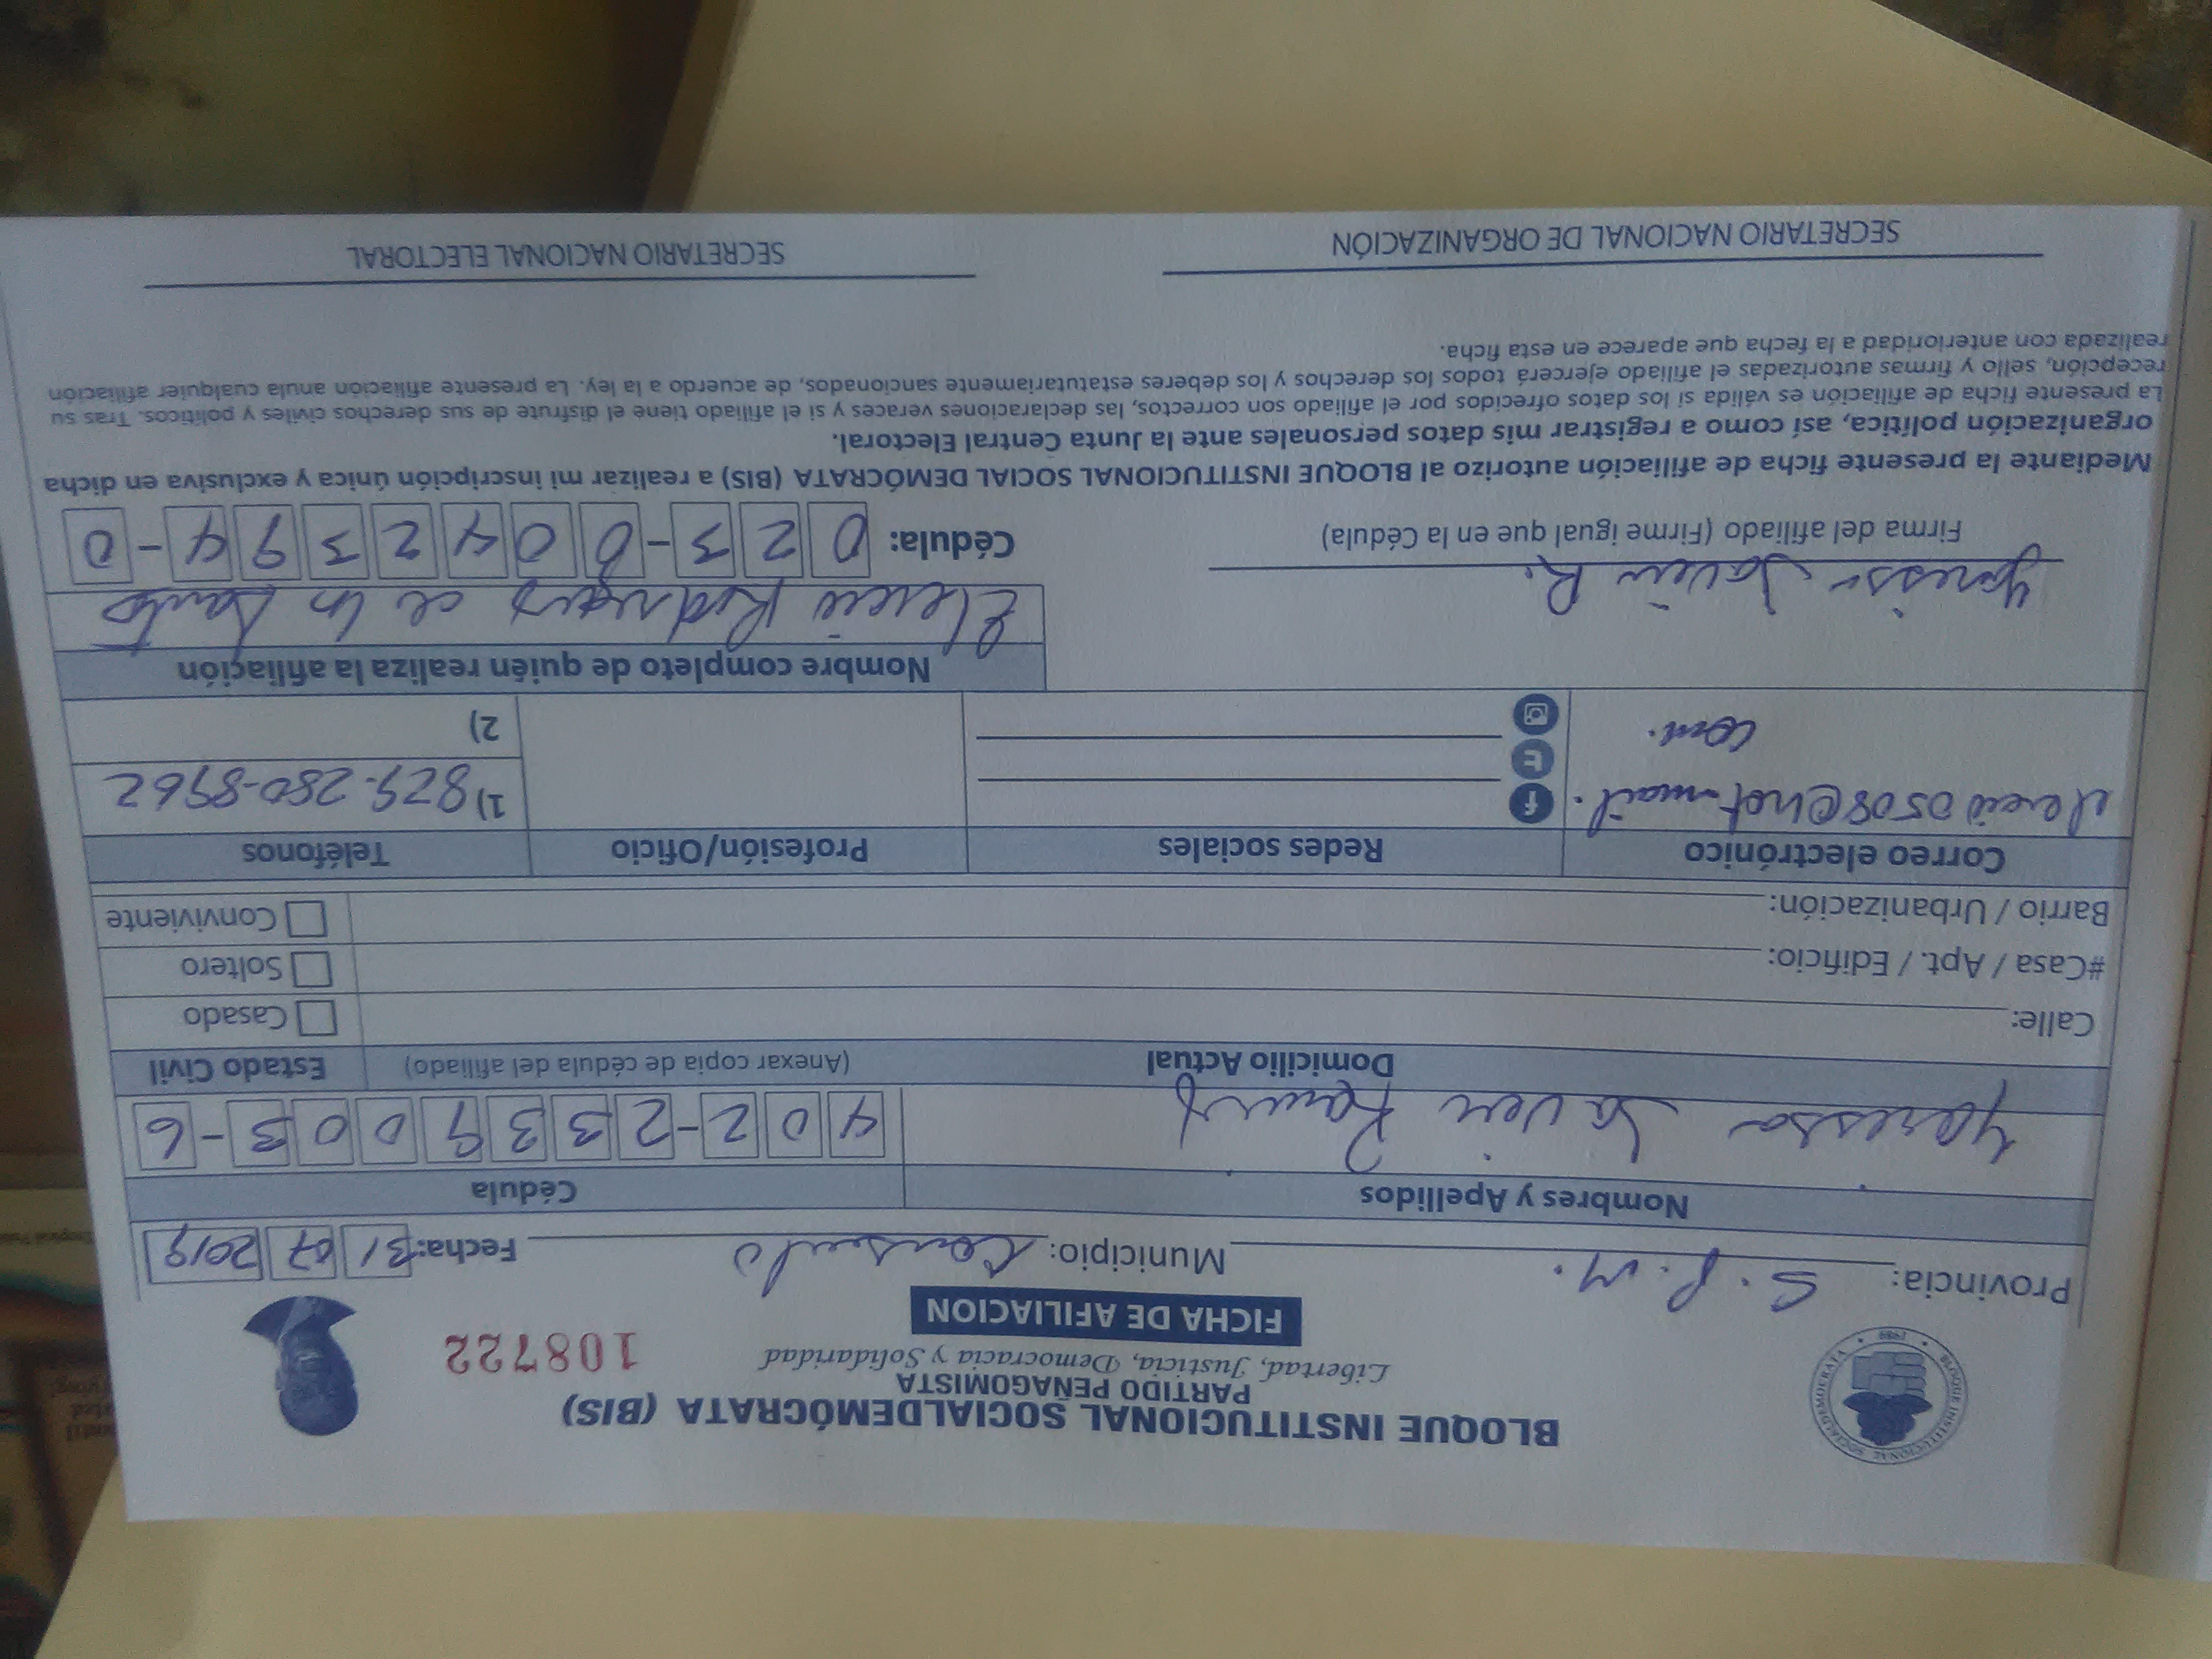 BLOQUE INSTITUCIONAL SOCIALDEMÓCRATA (BIS)
PARTIDO PEÑAGOMISTA
Libertad, Justicia, Democracia y Solidaridad
108722
FICHA DE AFILIACION
BLOQUE INSTITUCIONAL SOCIALDEMOCRATA 1989
Provincia: S. P. M. Municipio: Consuelo Fecha: 31 07 2019
Nombres y Apellidos Cédula
Yanessa Javier Ramirez 402-2339003-6
Domicilio Actual (Anexar copia de cédula del afiliado) Estado Civil
Calle: Casado
#Casa / Apt. / Edificio: Soltero
Barrio / Urbanización: Conviviente
Correo electrónico Redes sociales Profesión/Oficio Teléfonos
elencio0508@hotmail. 1) 829-280-8962
com. 2)
Nombre completo de quién realiza la afiliación
Yanessa Javier R. Rodriguez de los Santos
Firma del afiliado (Firme igual que en la Cédula) Cédula: 023-0042394-0
Mediante la presente ficha de afiliación autorizo al BLOQUE INSTITUCIONAL SOCIAL DEMÓCRATA (BIS) a realizar mi inscripción única y exclusiva en dicha
organización política, así como a registrar mis datos personales ante la Junta Central Electoral.
La presente ficha de afiliación es válida si los datos ofrecidos por el afiliado son correctos, las declaraciones veraces y si el afiliado tiene el disfrute de sus derechos civiles y políticos. Tras su
recepción, sello y firmas autorizadas el afiliado ejercerá todos los derechos y los deberes estatutariamente sancionados, de acuerdo a la ley. La presente afiliación anula cualquier afiliación
realizada con anterioridad a la fecha que aparece en esta ficha.
SECRETARIO NACIONAL DE ORGANIZACIÓN SECRETARIO NACIONAL ELECTORAL